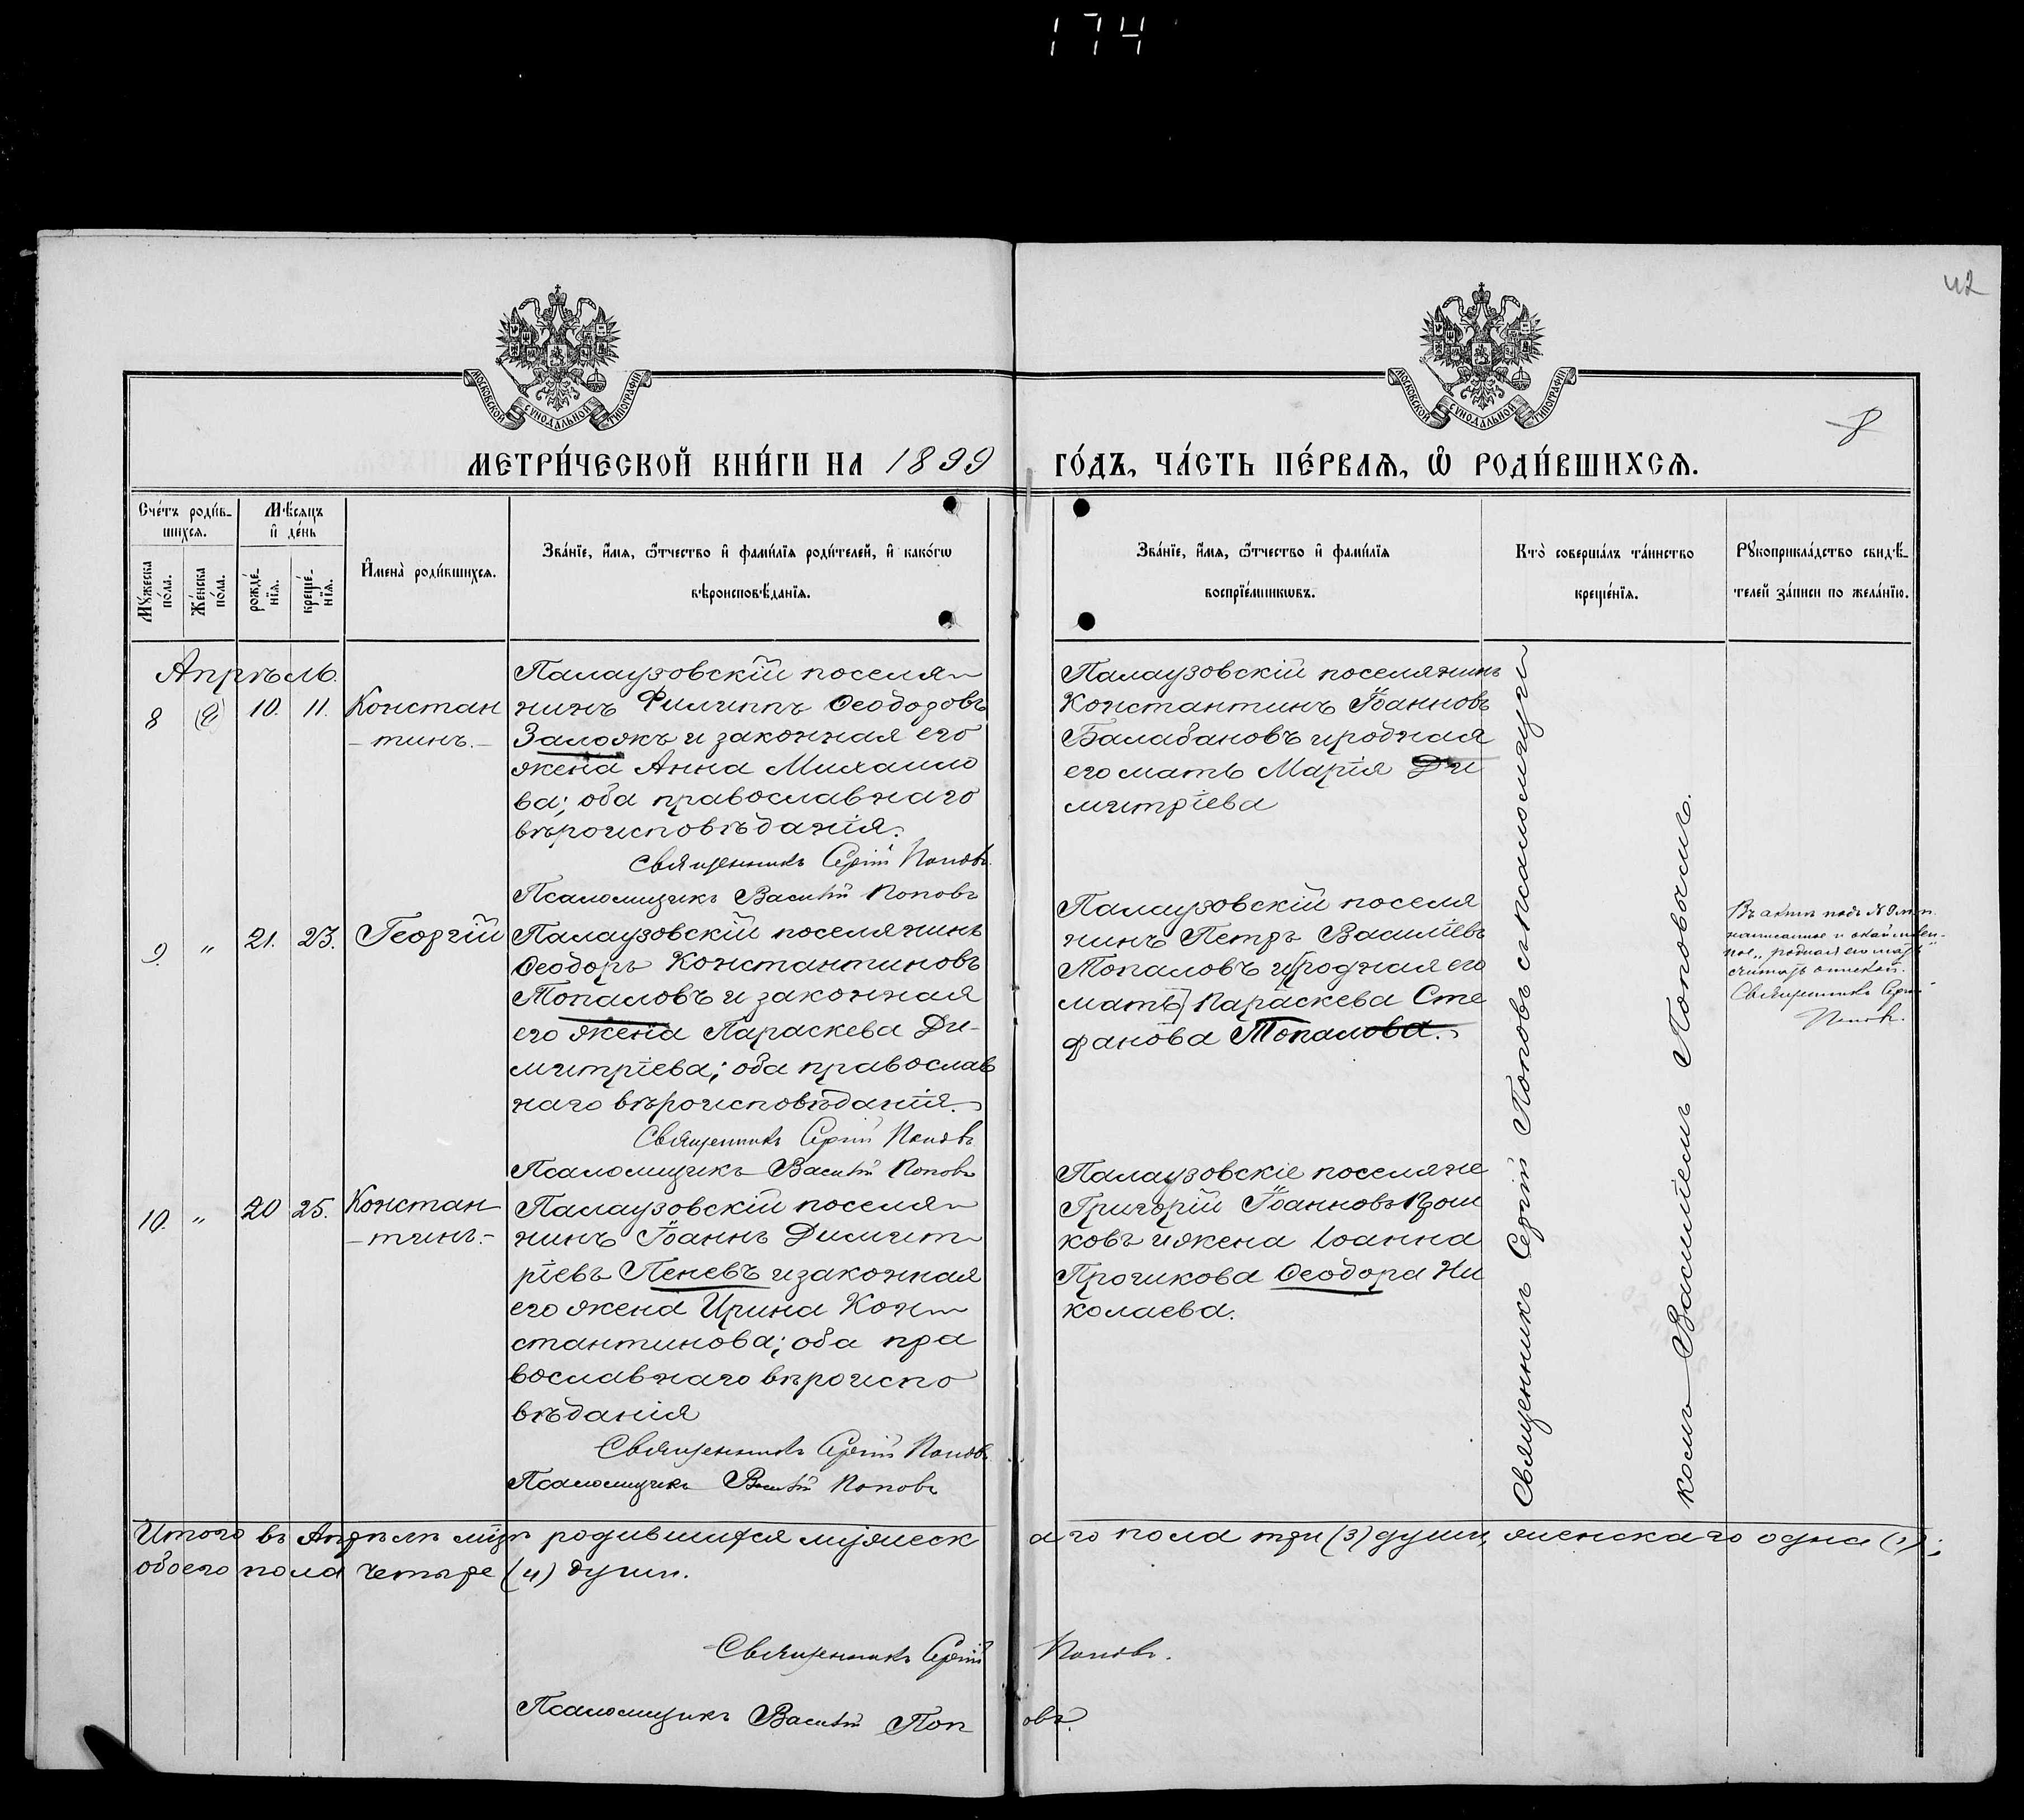 174
42
8
МОСКОВСКОЙ СѴНОДАЛЬНОЙ ТИПОГРАФІИ
МОСКОВСКОЙ СѴНОДАЛЬНОЙ ТИПОГРАФІИ
МЕТРИ́ЧЕСКОЙ КНИ́ГИ НА 1899 ГО́ДЪ, ЧА́СТЬ ПЕ́РВАѦ, Ѽ РОДИ́ВШИХСѦ.
Сче́тъ роди́в-
шихсѧ.
Мѣ́сяцъ
и҆ де́нь
Мꙋ́жеска
по́ла.
Же́нска
по́ла.
рожде́-
нїѧ.
креще́-
нїѧ.
И҆мена̀ роди́вшихсѧ.
Зва́нїе, и҆́мѧ, ѻ҆́тчество и҆ фами́лїѧ роди́телей, и҆ како́гѡ
вѣроисповѣ́данїѧ.
Зва́нїе, и҆́мѧ, ѻ҆́тчество и҆ фами́лїѧ
воспрїе́мникѡвъ.
Кто̀ соверша́лъ та́инство
креще́нїѧ.
Рꙋкоприкла́дство свидѣ́-
телей за́писи по жела́нїю.
Апрѣль.
8 10. 11. Констан
- тинъ. -
Палаузовскій поселя-
нинъ Филиппъ Ѳеодоровъ
Залоякъ и законная его
жена Анна Михаило
ва; оба православнаго
вѣроисповѣданія.
Священникъ Сергій Поповъ
Псаломщикъ Василій Поповъ
Палаузовскій поселянинъ
Константинъ Іоанновъ
Балабановъ и родная
его мать Марія Ди
митріева
9. " 21. 23. Георгій
Палаузовскій поселянинъ
Ѳеодоръ Константиновъ
Топаловъ и законная
его жена Параскева Ди-
митріева; оба православ
наго вѣроисповѣданія.
Священникъ Сергій Поповъ
Псаломщикъ Василій Поповъ
Палаузовскій поселя
нинъ Петръ Василіевъ
Топаловъ и [родная его
мать] Параскева Сте
фанова Топалова.
Въ актѣ подъ № 9
написанное и
ное „родная его мать"
считать
Священникъ Сергій
Поповъ.
10. " 20 25. Констан
- тинъ. -
Палаузовскій поселя-
нинъ Іоаннъ Димит-
ріевъ Пеневъ и законная
его жена Ирина Кон-
стантинова; оба пра
вославнаго вѣроиспо
вѣданія
Священникъ Сергій Поповъ
Псаломщикъ Василій Поповъ
Палаузовскіе поселяне
Григорій Іоанновъ
ковъ и жена Іоанна
Ѳеодора Ни
колаева.
Священникъ Сергій Поповъ съ псаломщи
комъ Василіемъ Поповымъ.
Итого въ Апрѣлѣ м-цѣ родившихся мужескаго пола три (3) души, женскаго одна (1);
обоего пола четыре (4) души.
Священникъ Сергій Поповъ.
Псаломщикъ Василій Поповъ.